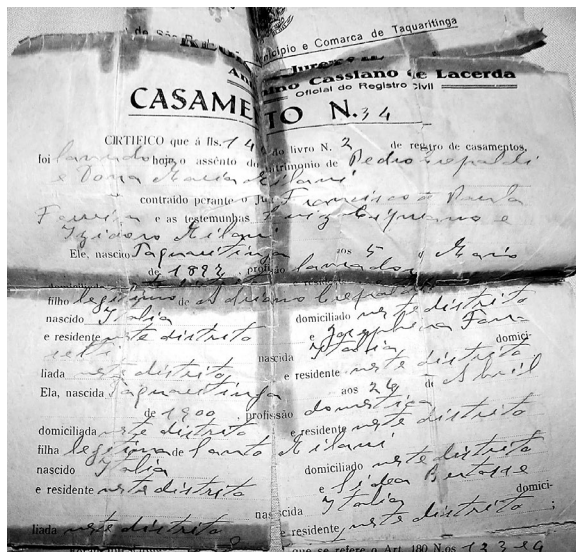 Município e Comarca de Taquaritinga
Cassiano de Lacerda
Oficial do Registro Civil
CASAMENTO N. 34
CERTIFICO que á fls. 14 do livro N. 2 de registro de casamentos,
foi lavrado hoje o assento do matrimonio de Pedro Crepaldi
e Dona Maria Milani
contraido perante o Juiz Francisco de Paula
Ferreira e as testemunhas Luiz Cypriano e
Izidoro Milani
Ele, nascido Taquaritinga aos 5 de Maio
de 1892 profissão lavrador
domiciliado neste distrito e residente
filho legitimo de Adriano Crepaldi
nascido Italia domiciliado neste distrito
e residente neste distrito e Josephina
nascida Italia domici-
liada neste distrito e residente neste distrito
Ela, nascida Taquaritinga aos 26 de Abril
de 1900 profissão domestica
domiciliada neste distrito e residente neste distrito
filha legitima de Santo Milani
nascido Italia domiciliado neste distrito
e residente neste distrito e
nascida Italia domici-
liada neste distrito e residente neste distrito ;
que se refere o Art. 180 N.os 1 2 3 e 4